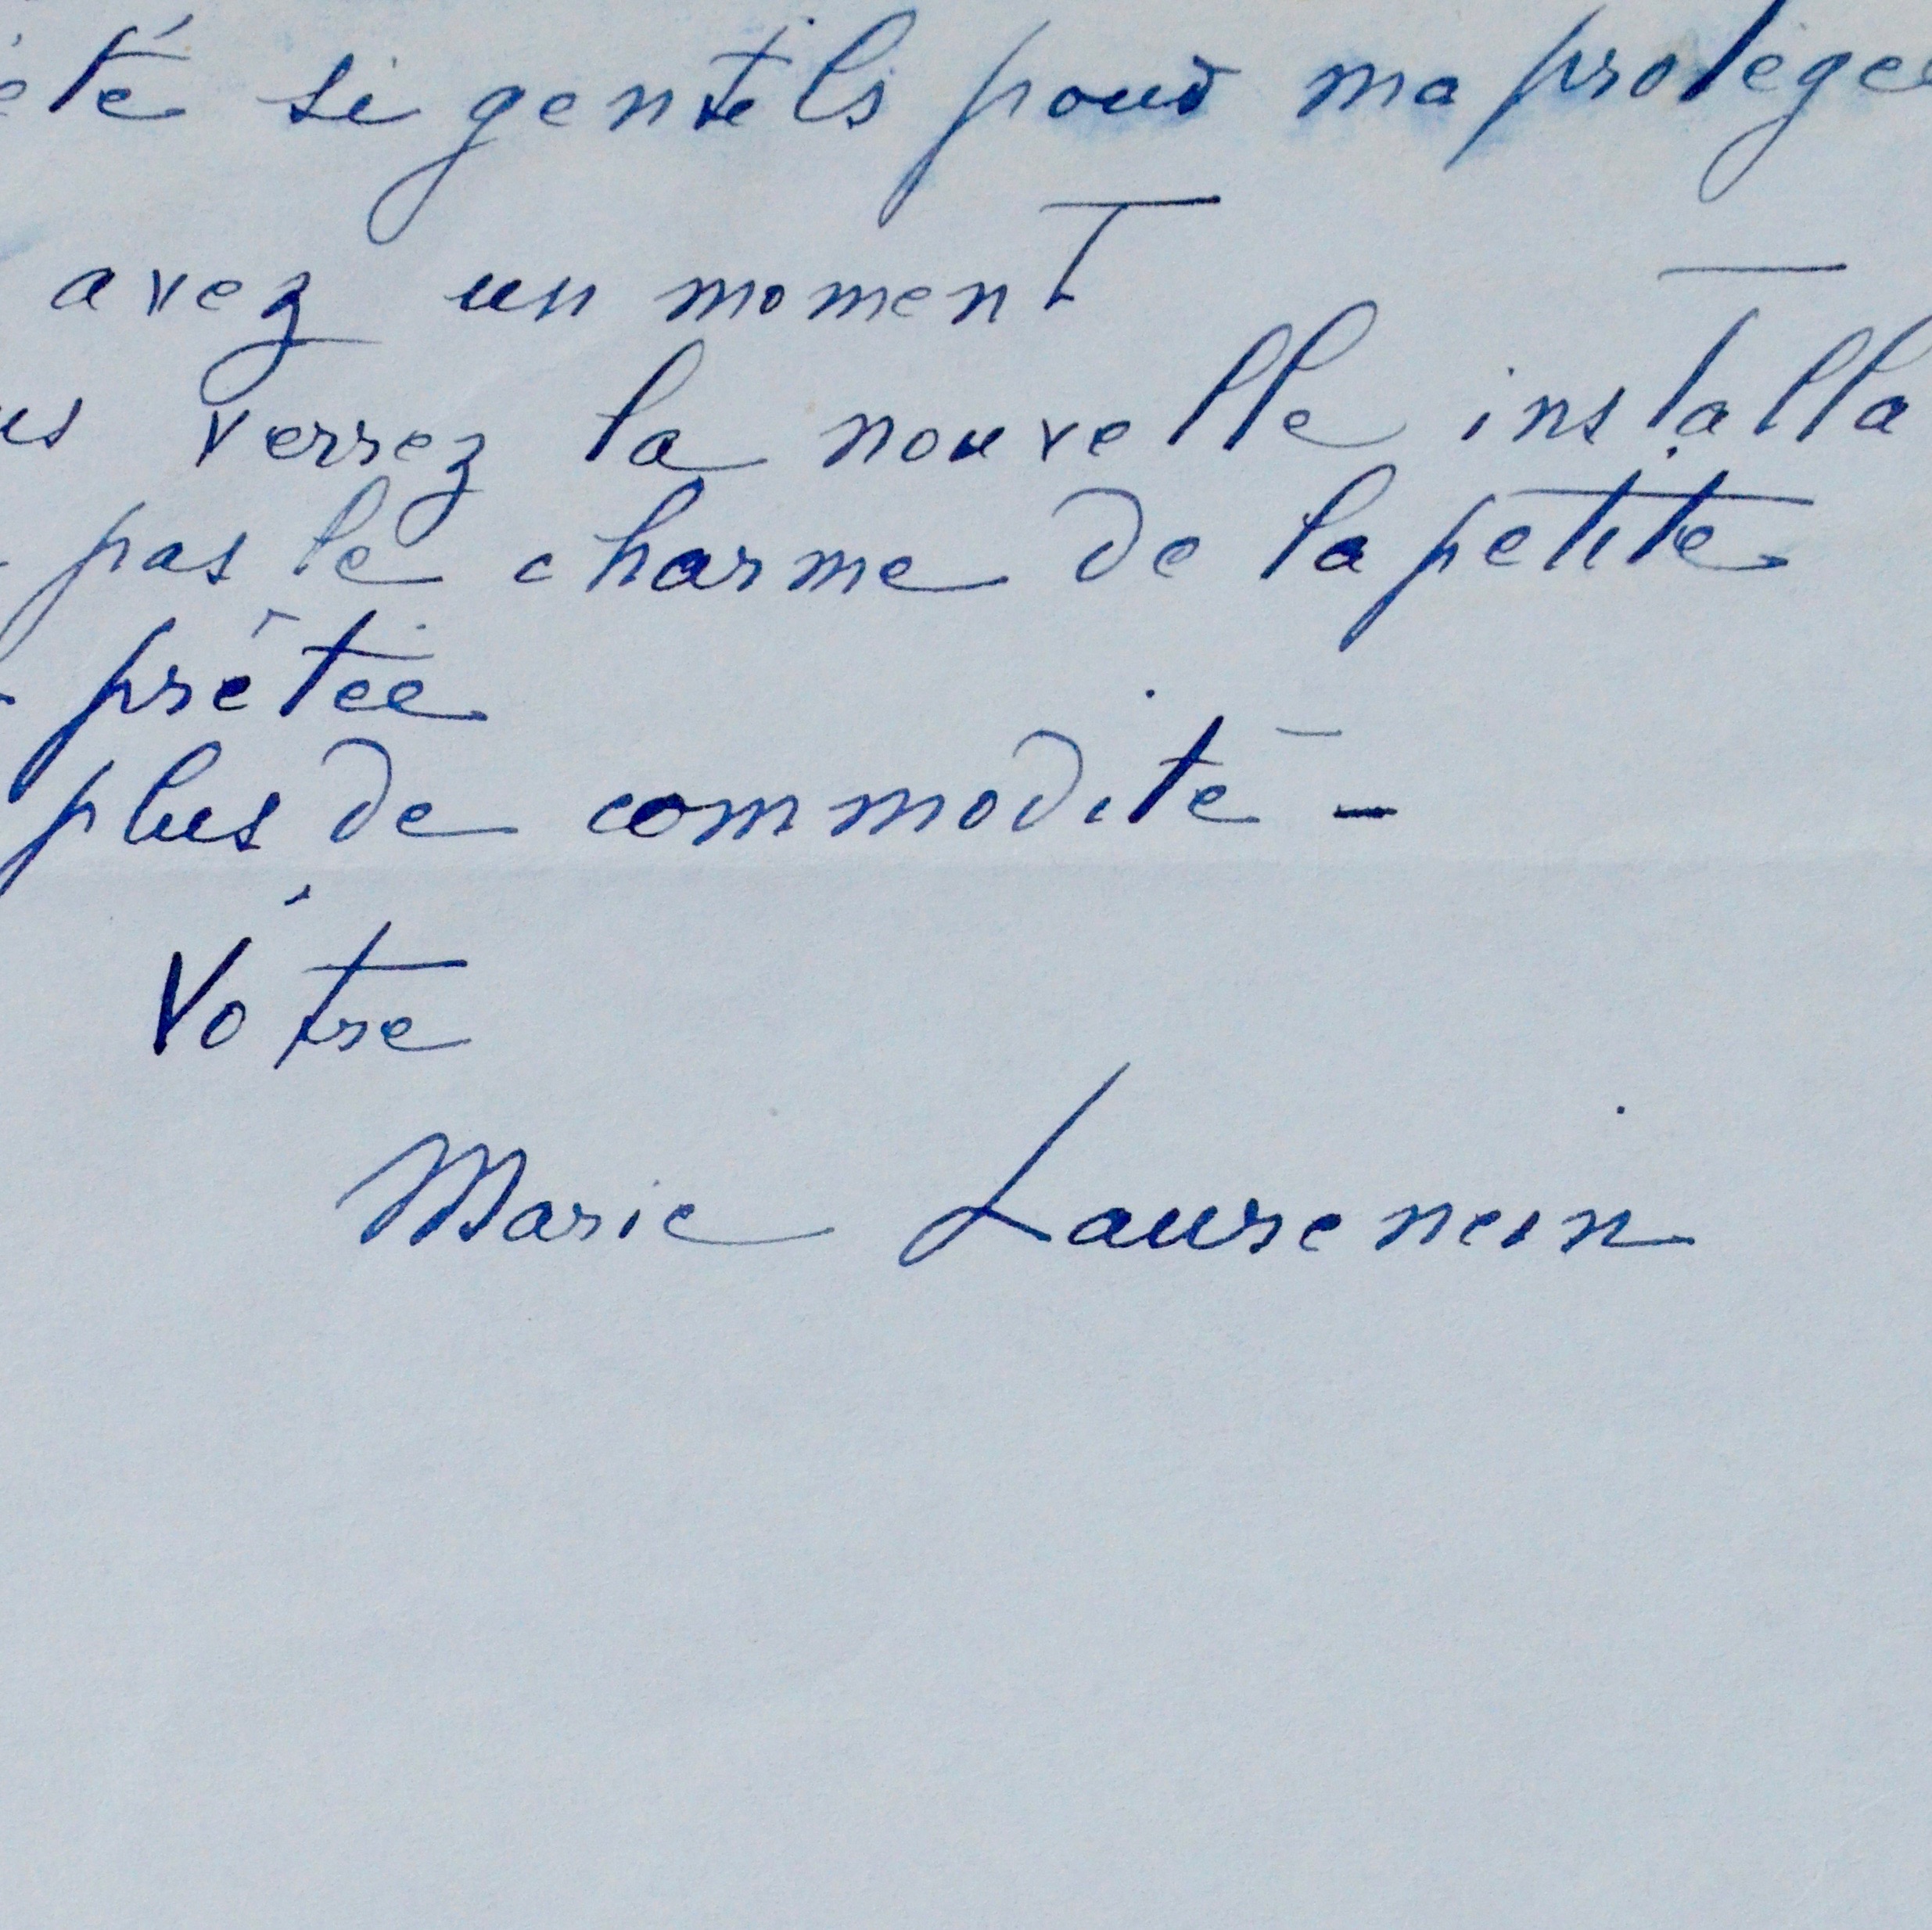 été si gentils pour ma protégé
avez un moment
us verrez la nouvelle installa
pas le charme de la petite
prêtée
plus de commodité -
Votre
Marie Laurencin